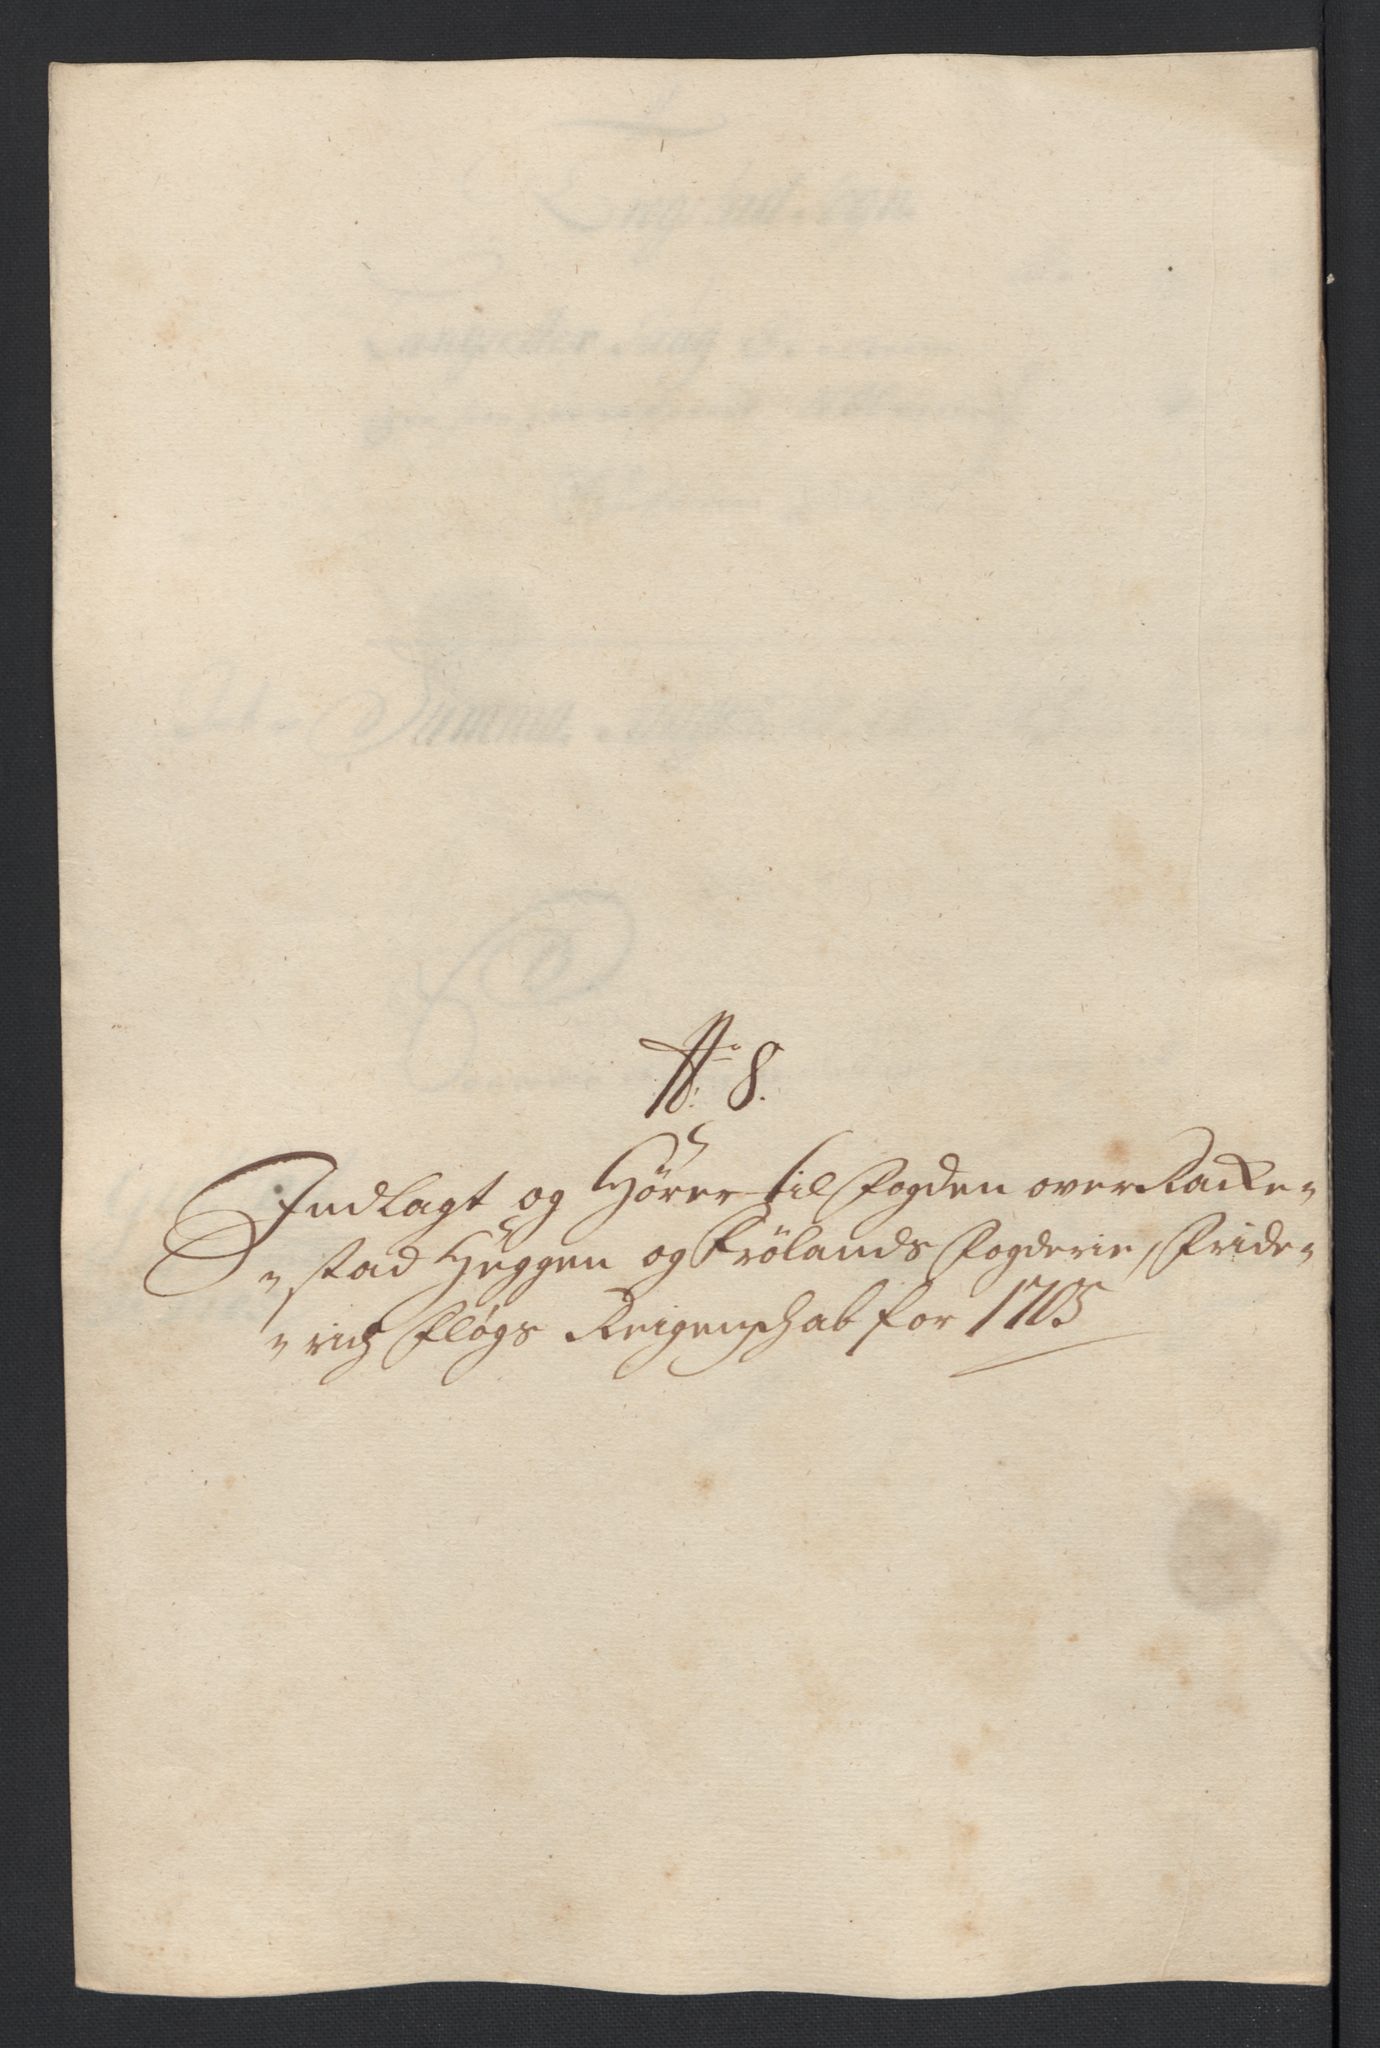 No 8.
Indlagt og Hører til Fogden over Racke=
=stad Heggen og Frølands Fogderie, Fride=
=rich Fløgs Reigenschab for 1705